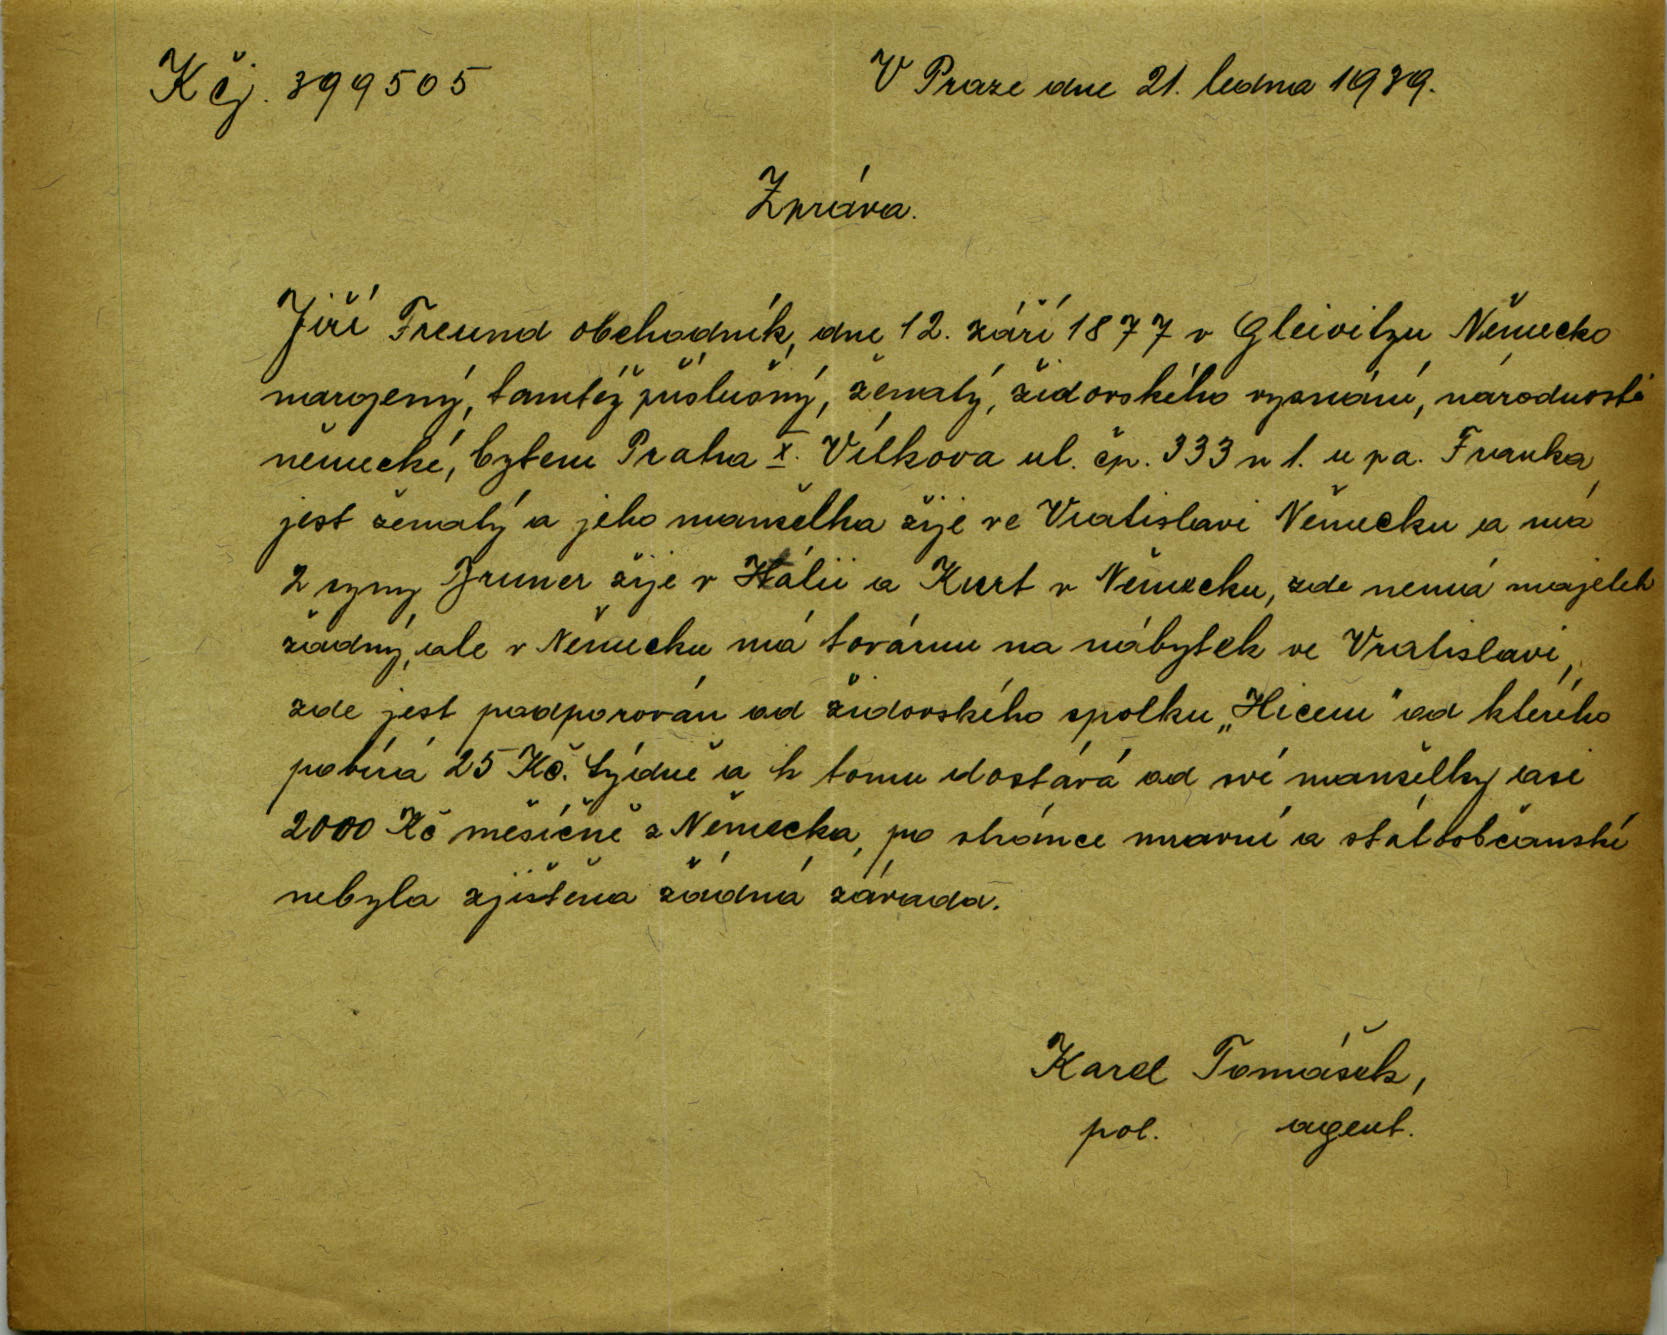 K čj. 399505
V Praze dne 21. ledna 1939.
Zpráva.
Jiří Freund obchodník, dne 12. září 1877 v Gleivitzu Německo
narozený, tamtéž příslušný, ženatý, židovského vyznání, národnosti
německé, bytem Praha X. Vítkova ul. čp. 333 n 1. u pa. Franka,
jest ženatý a jeho manželka žije ve Vratislavi Německu a má
2 syny žije v Itálii a Kurt v Německu, zde nemá majetek
žádný, ale v Německu má továrnu na nábytek ve Vratislavi,
zde jest podporován od židovského spolku „Hicem" od kterého
pobírá 25 Kč. týdně a k tomu dostává od své manželky asi
2000 Kč měsíčně z Německa, po stránce mravní a státoobčanské
nebyla zjištěna žádná závada.
Karel Tomášek,
pol. agent.